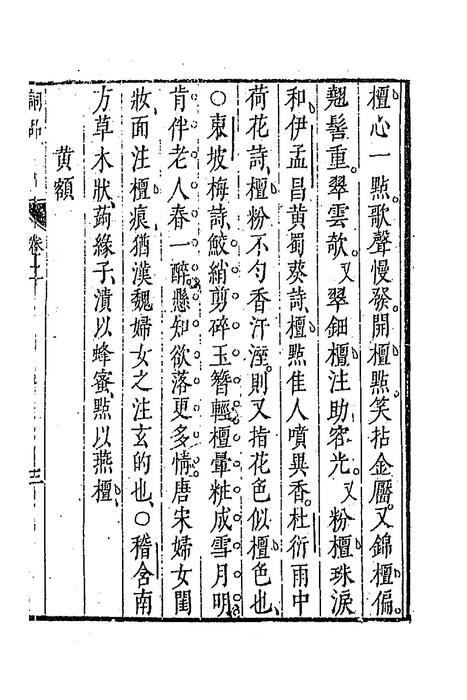 檀心一點歌聲慢發開檀點笑拈金靨又錦檀偏
翹髻重翠雲欹又翠鈿檀注助容光又粉檀珠淚
和伊孟昌黄蜀葵詩檀點佳人噴異香杜衍雨中
荷花詩檀粉不勻香汗溼則又指花色似檀色也
○東坡梅詩鮫綃剪碎玉簪輕檀暈粧成雪月明
肯伴老人春一醉懸知欲落更多情唐宋婦女閨
妝面注檀痕猶漢魏婦女之注玄的也○稽含南
方草木狀蒟緣子漬以蜂蜜點以燕檀
黄額
詞品
卷二
三